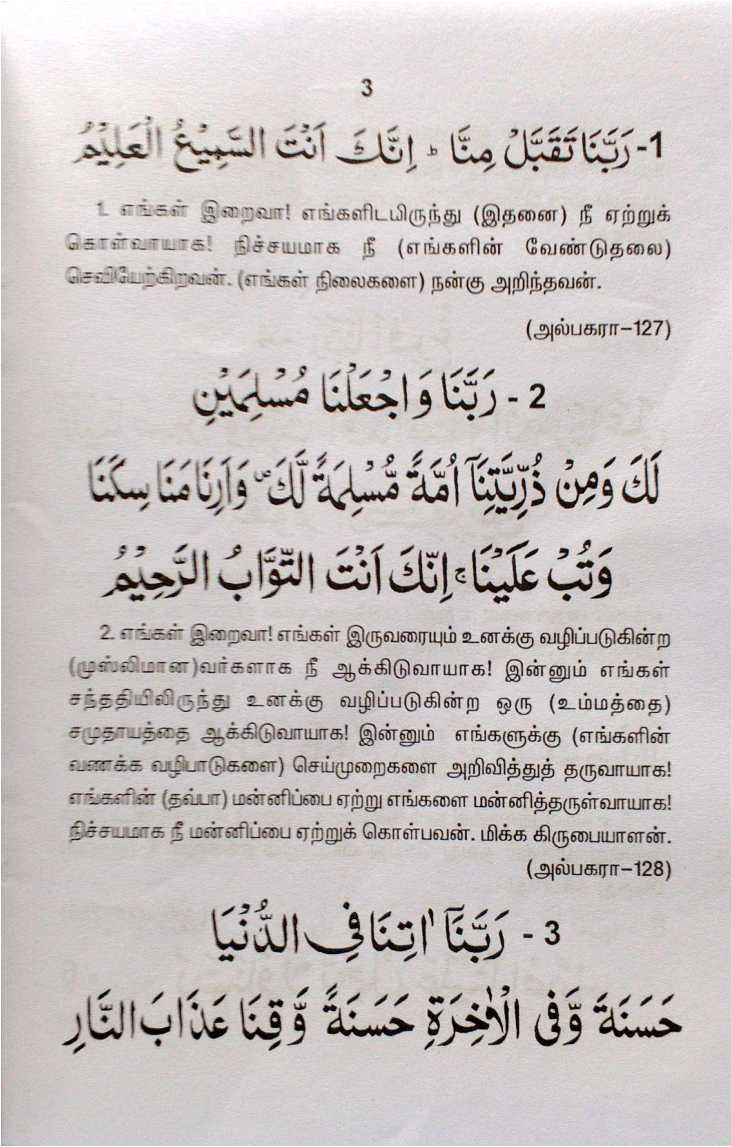 3
1- رَبَّنَا تَقَبَّلْ مِنَّا ؕ اِنَّكَ اَنْتَ السَّمِيْعُ الْعَلِيْمُ
1. எங்கள் இறைவா! எங்களிடமிருந்து (இதனை) நீ ஏற்றுக்
கொள்வாயாக! நிச்சயமாக நீ (எங்களின் வேண்டுதலை)
செவியேற்கிறவன். (எங்கள் நிலைகளை) நன்கு அறிந்தவன்.
(அல்பகரா–127)
2 - رَبَّنَا وَ اجْعَلْنَا مُسْلِمَيْنِ
لَكَ وَمِنْ ذُرِّيَّتِنَآ اُمَّةً مُّسْلِمَةً لَّكَ ۪ وَاَرِنَا مَنَا سِكَنَا
وَتُبْ عَلَيْنَا ۚ اِنَّكَ اَنْتَ التَّوَّابُ الرَّحِيْمُ
2. எங்கள் இறைவா! எங்கள் இருவரையும் உனக்கு வழிப்படுகின்ற
(முஸ்லிமான)வர்களாக நீ ஆக்கிடுவாயாக! இன்னும் எங்கள்
சந்ததியிலிருந்து உனக்கு வழிப்படுகின்ற ஒரு (உம்மத்தை)
சமுதாயத்தை ஆக்கிடுவாயாக! இன்னும் எங்களுக்கு (எங்களின்
வணக்க வழிபாடுகளை) செய்முறைகளை அறிவித்துத் தருவாயாக!
எங்களின் (தவ்பா) மன்னிப்பை ஏற்று எங்களை மன்னித்தருள்வாயாக!
நிச்சயமாக நீ மன்னிப்பை ஏற்றுக் கொள்பவன். மிக்க கிருபையாளன்.
(அல்பகரா–128)
3 - رَبَّنَآ اٰتِنَا فِي الدُّنْيَا
حَسَنَةً وَّفِي الْاٰخِرَةِ حَسَنَةً وَّقِنَا عَذَابَ النَّارِ